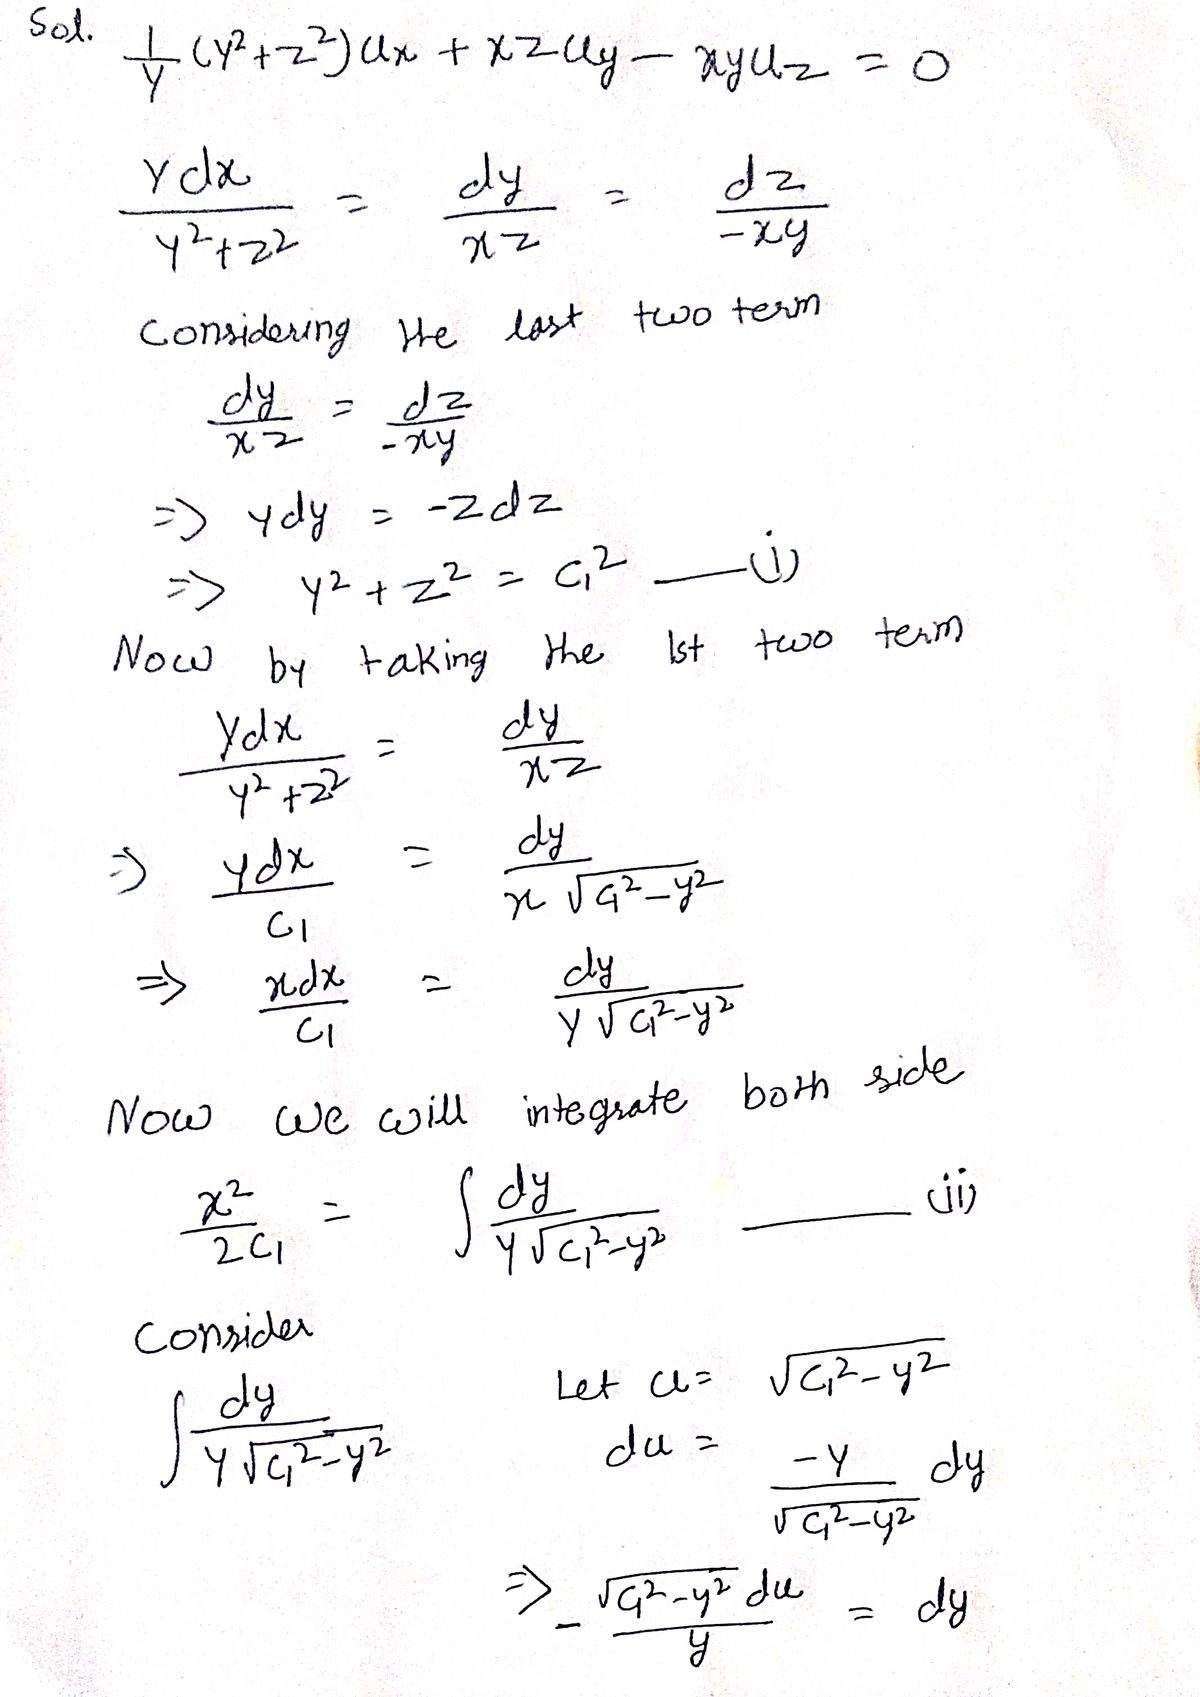 Sol. 1/y (y²+z²)Ux + xzUy − xyUz = 0
ydx/(y²+z²) = dy/xz = dz/−xy
Considering the last two term
dy/xz = dz/−xy
=> ydy = −zdz
=> y²+z² = C₁² —(i)
Now by taking the Ist two term
ydx/(y²+z²) = dy/xz
=> ydx/C₁ = dy/(x√(C₁²−y²))
=> xdx/C₁ = dy/(y√(C₁²−y²))
Now we will integrate both side
x²/2C₁ = ∫ dy/(y√(C₁²−y²)) —(ii)
Consider
∫ dy/(y√(C₁²−y²)) Let u = √(C₁²−y²)
du = −y/√(C₁²−y²) dy
=> −√(C₁²−y²) du/y = dy